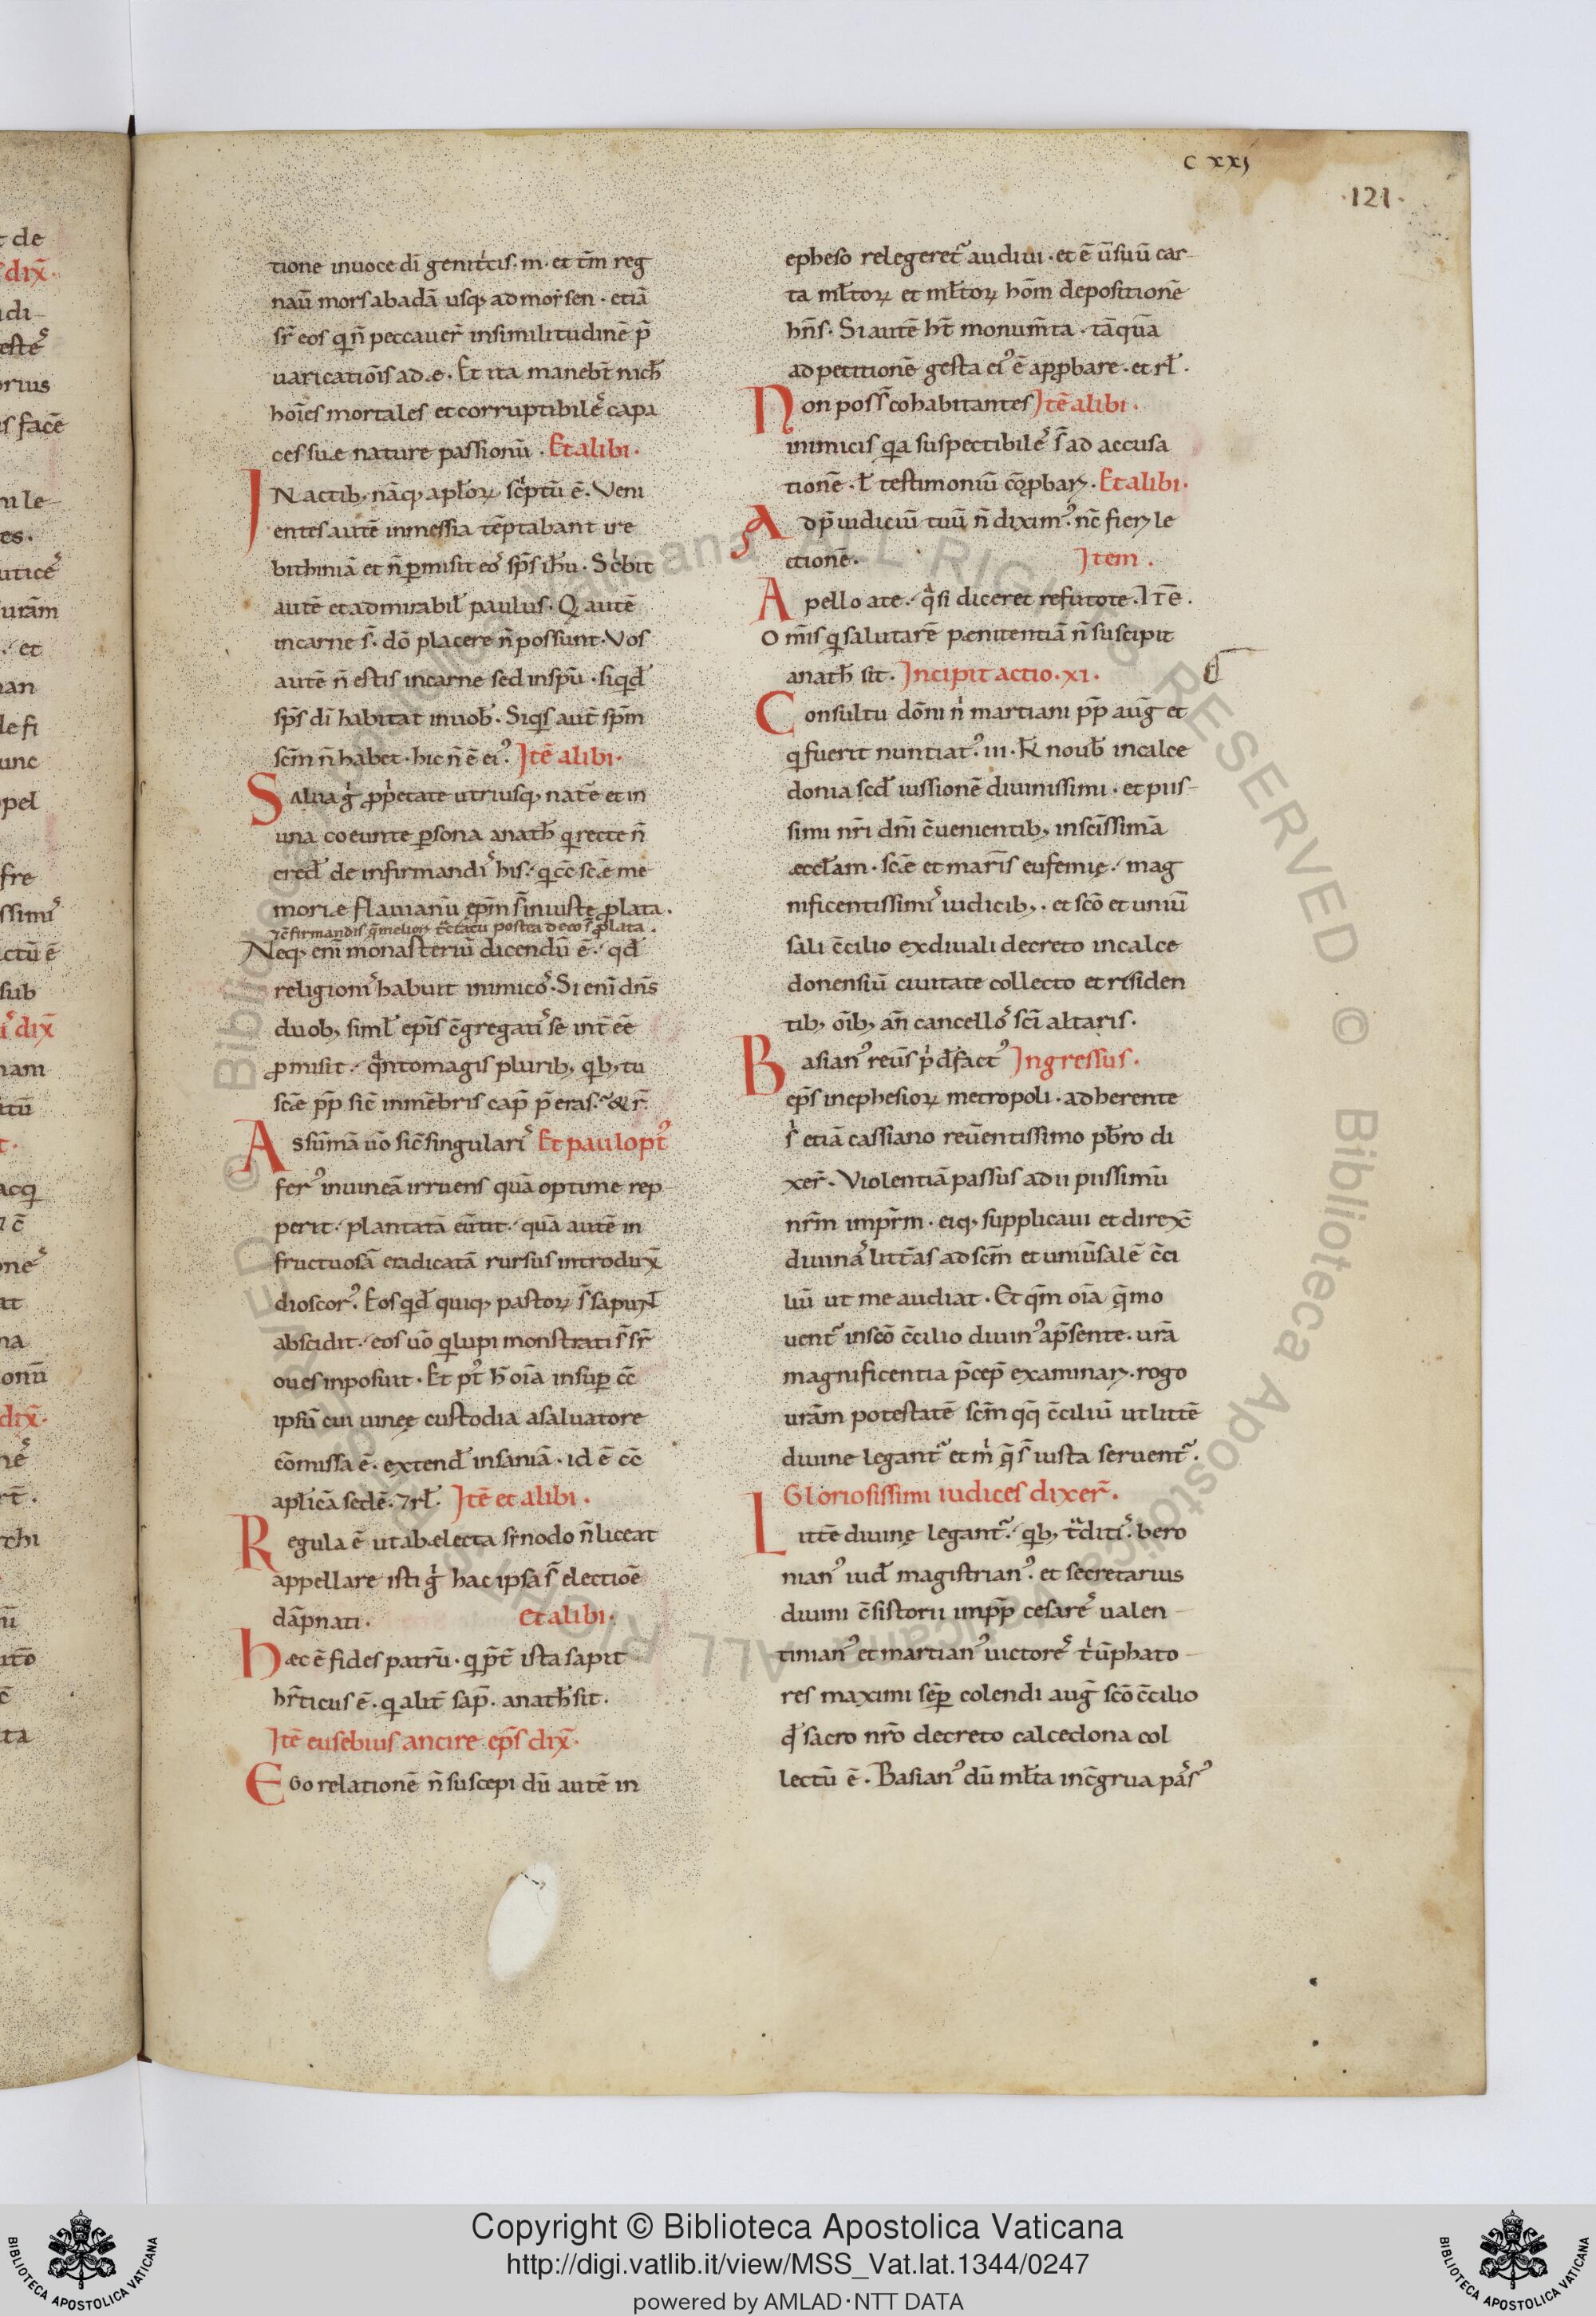 c xxj
·121·
tione inuoce dī genitͥcis· m· et t̄m reg
nau̅ mors abadā usq; ad moẏsen · etiā
sr̄ eos q̇ n̄ peccauer̄ insimilitudinē p̄
uaricatiōis adæ· Et ita manebt̄ nich̄
hoīes mortales et corruptibile͛ capa
ces suæ nature passionū · Et alibi·
IN actib; nāq; apl̄oꝝ scͥptū ē· Veni
entes autē inmessia tēptabant ire
bithiniā et n̄ ꝑmisit eo͛ sp̄s ih̄u· Scͥbit
autē et admirabil̄ paulus· Q autē
incarne s̄· dō placere n̄ possunt· Vos
autē n̄ estis incarne sed inspū · siqͥd̄
sp̄s dī habitat inuob̄· Siqͥs aut̄ sp̄m
sc̄m n̄ habet· hic n̄ ē ei᾿· Itē alibi·
Salua gͥ ꝓpͥetate utriusq; nat̄e et in
una coeunte ꝑsona anath̄ q̇ recte n̄
cred̄ de infirmandi͛ his· q̇ cc̄ scǣ me
moriæ flauianū ep̄m s̄ iniuste ꝓlata·
⁊ c̄firmandis q̄ melioꝝ tc̄tatu postea deeo s̄ ꝓlata·
Neq; enī monasteriū dicendū ē· qd̄
religioni͛ habuit inimico͛· Si enī dn̄s
duob; siml̄ epīs c̄gregati͛ se int̄ ēē
ꝓmisit· qͣntomagis plurib; qͥb; tu
scǣ pp̄ sic̄ inmēbris cap̄ p̄eras· & r̄·
Assūmā uō sic̄ singulari͛ Et paulopt᾿
fer᾿ inuineā irruens quā optime rep
perit· plantatā eūtit· quā autē in
fructuosā eradicatā rursus introdux̄
dioscor᾿· Eos qͥd̄ quiq; pastoꝝ s̄ sapuꝝt̄
abscidit· eos uō q̇ lupi monstrati s̄ sr̄
oues inposuit· Et pt᾿ h̄ oīa insuꝑ cc̄
ipsū cui uineę custodia asaluatore
cōmissa ē· extend̄ insaniā· id ē cc̄
apl̄icā sedē· ⁊rl̄· Itē et alibi·
Regula ē ut abælecta sẏnodo n̄ liceat
appellare isti gͥ hac ipsa s̄ electiōē
dāpnati· et alibi·
hæc ē fides patrū· q̇ pt̄ ista sapit
hr̄ticus ē· q̇ alit̄ sap̄· anath̄ sit·
Itē eusebius ancire ep̄s dix̄·
Ego relationē n̄ suscepi dū autē in
epheso relegeret᾿ audiui· et ē u̅suū car-
ta ml̄toꝝ et ml̄toꝝ hōm depositionē
hn̄s· Si autē ht̄ monum̄ta· tāquā
ad petitionē gesta ei᾿ ē apꝓbare· et rl̄·
Non poss̄ cohabitantes Itē alibi·
inimicis q̇a suspectibile͛ s̄ ad accusa
tionē· l̄ testimoniū cōꝓbaꝝ· Et alibi·
Adp̄ iudiciū tuū n̄ dixim᾿· nc̄ fieꝝ le
ctionē· Item·
Apello ate· qͣsi diceret refutote· ITĒ·
Om̄is q̇ salutarē penitentiā n̄ suscipit
anath̄ sit· Incipit actio·xi·
Consultu dōni nͥ martiani pp̄ aug̅ et
q̇ fuerit nuntiat᾿· iii· kl̄ noub̄ incalce
donia scd̄ iussionē diuinissimi· et piis-
simi nr̄i dn̄i c̄uenientib; insc̄issimā
æccl̄am· scǣ et mar̄is eufemię· mag
nificentissimi͛ iudicib;· et scō et uniu̅
sali c̄cilio exdiuali decreto incalce
donensiū ciuitate collecto et residen
tib; oīb; an̄ cancello͛ scī altaris·
Basian᾿ reūs pͥd̄ fact᾿ Ingressus·
ep̄s inephesioꝝ metropoli· adherente
sͥ etiā cassiano reu̅entissimo pb̄ro di
xer̄· Violentiā passus adii piissimū
nr̄m impr̄m· eiq; supplicaui et direx̄
diuina͛ litt̄as ad scm̄ et uniu̅salē c̄ci
liū ut me audiat· Et qm̄ oīa q̄ mo
uent᾿ inscō c̄cilio diuin᾿ ap̄sente· ur̄a
magnificentia p̄cep̄ examinaꝝ· rogo
ur̄am potestatē scm̄ qq̄ c̄ciliū ut littē
diuine legant᾿ et mͥ q̄ s̄ iusta seruent᾿·
Gloriosissimi iudices dixer̄·
Littē diuinę legant᾿· qͥb; tͣditi͛· bero
nian᾿ iud̄ magistrian᾿· et secretarius
diuini c̄sistorii impp̄ cesare͛ ualen-
tinian᾿ et martian᾿ uictore͛ tͥūphato-
res maximi sēꝑ colendi aug̅ scō c̄cilio
qd̄ sacro nr̄o decreto calcedona col
lectū ē· Basian᾿ dū ml̄ta inc̄grua pa͛s᾿
Copyright © Biblioteca Apostolica Vaticana
http://digi.vatlib.it/view/MSS_Vat.lat.1344/0247
powered by AMLAD·NTT DATA